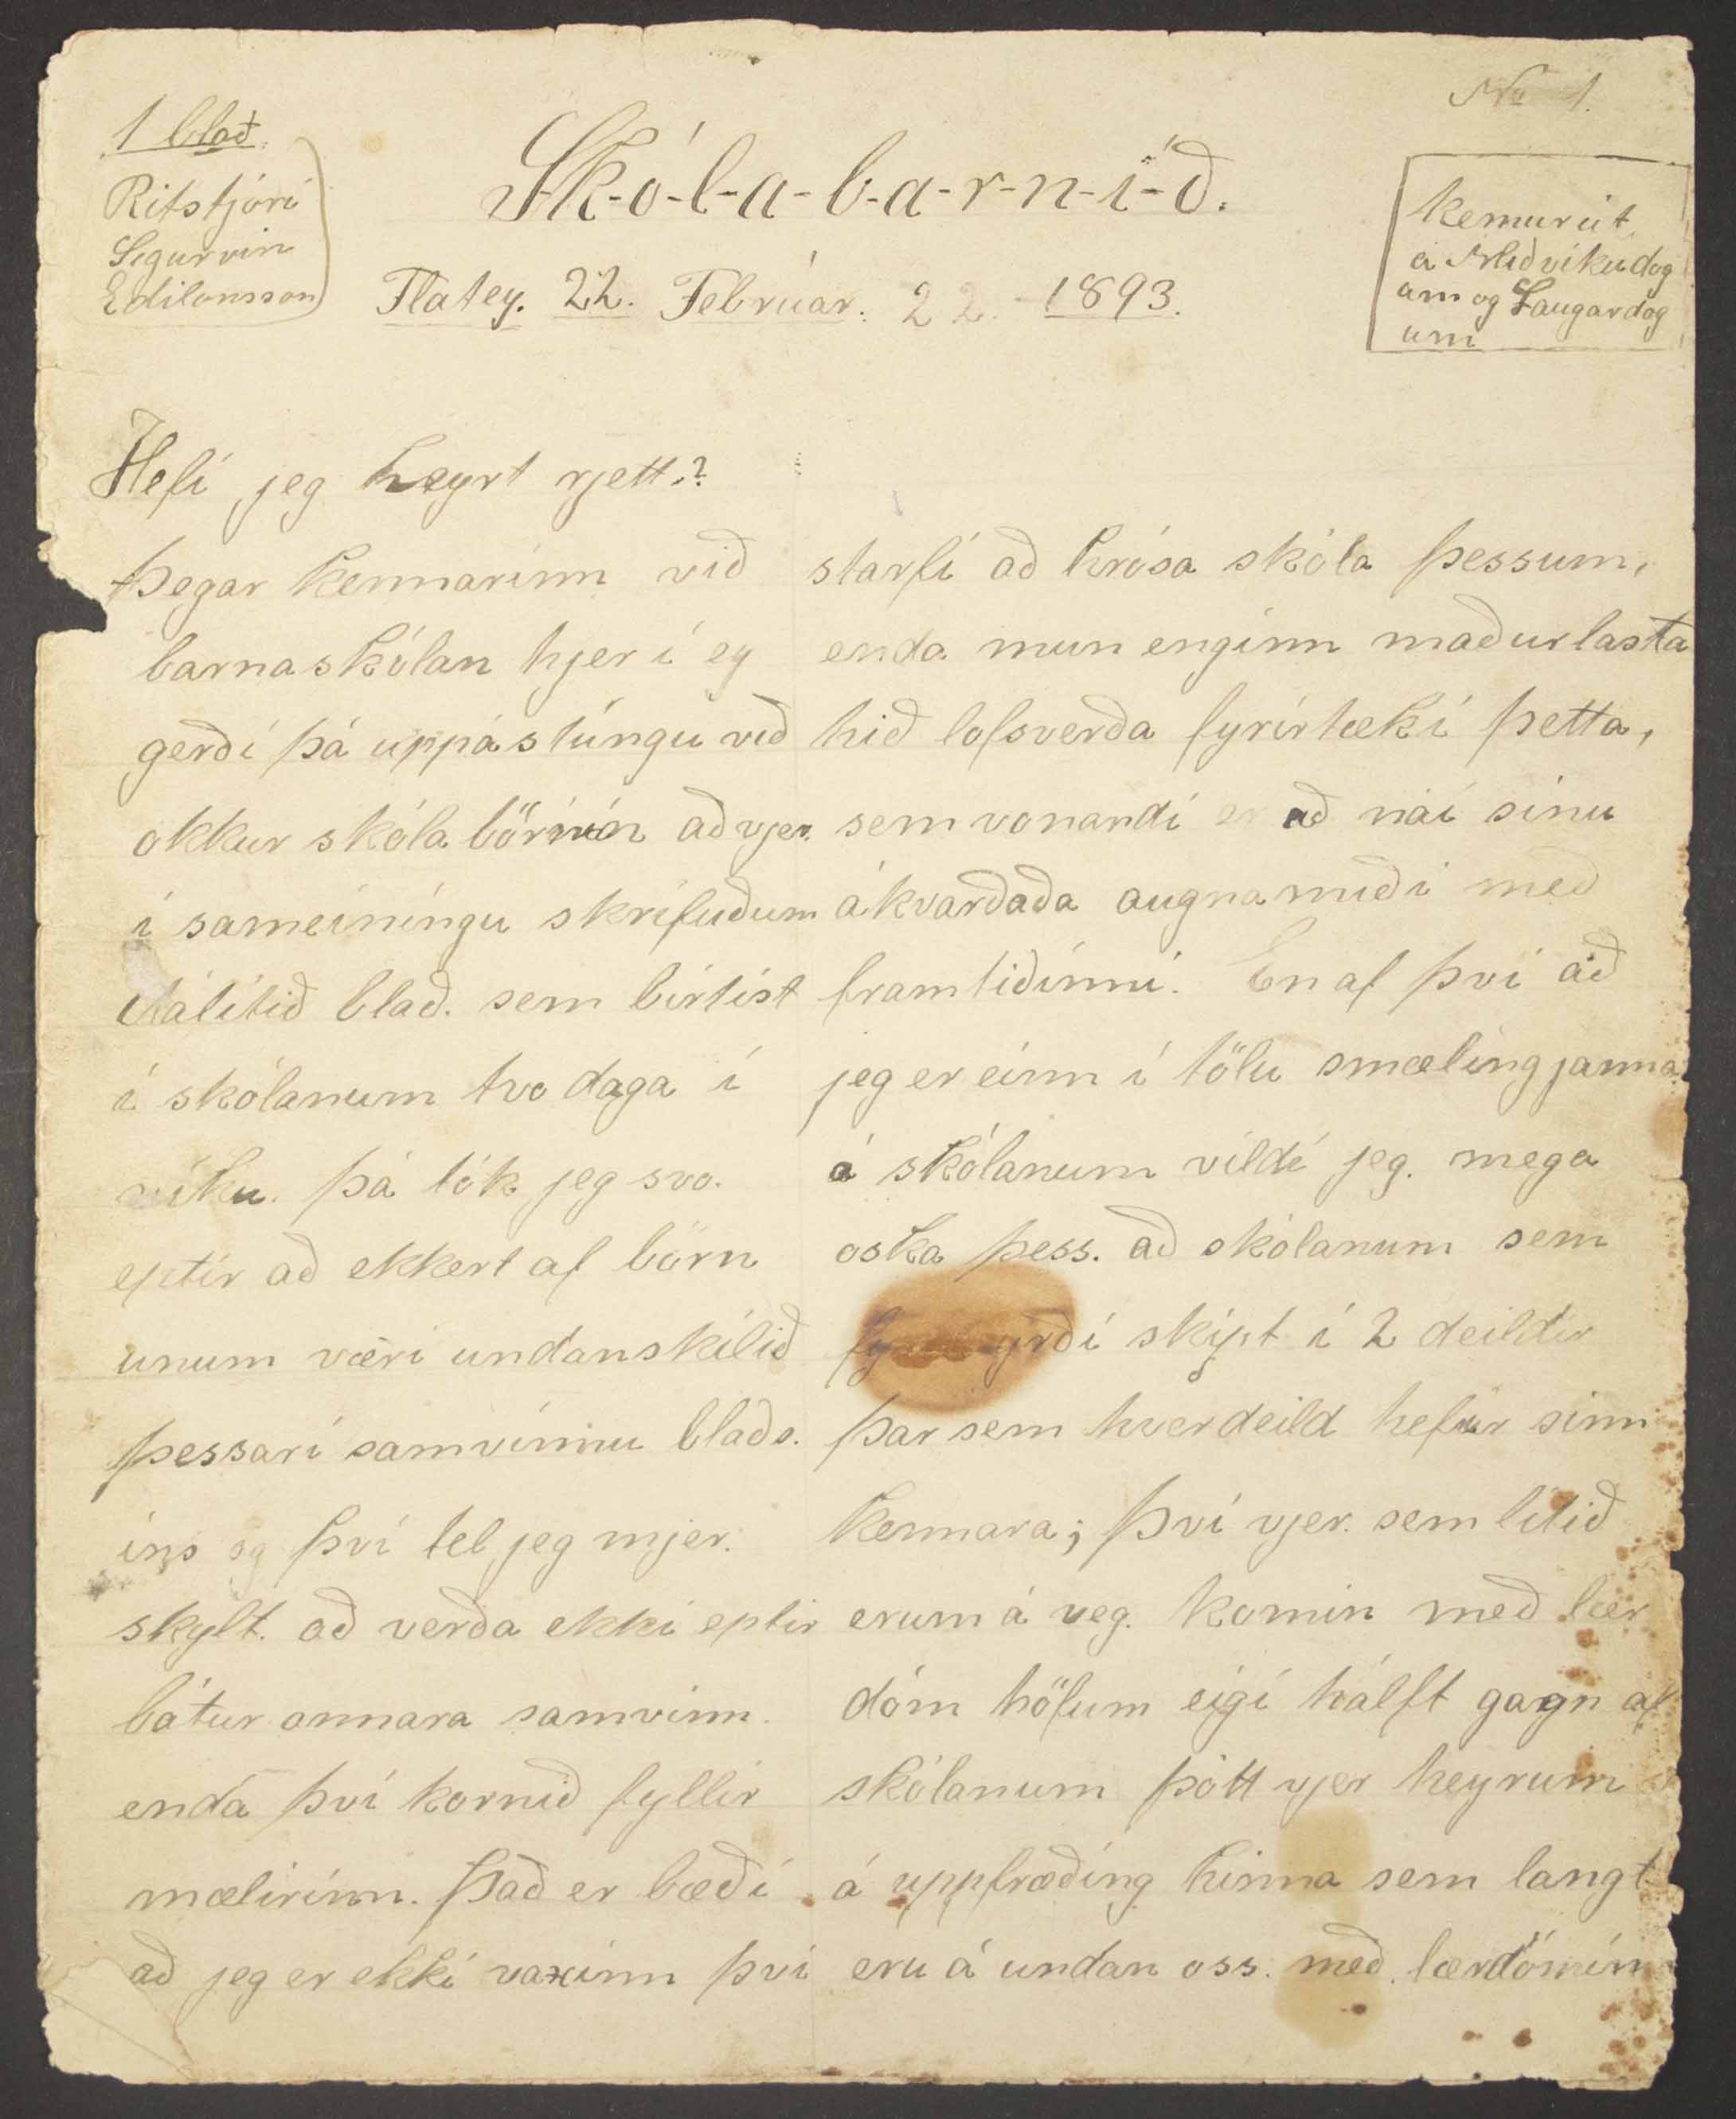 1 blað.
Ritstjóri
Sigurvin
Edilonsson
S-k-ó-l-a-b-a-r-n-i-ð.
Flatey. 22. Februar. 22. 1893.
No 1.
Kemur út
á Miðvikudög
um og Laugardög
um
Hefi jeg heyrt rjett.?
Þegar kennarinn við
barnaskólan hjer í ey
gerði þá uppástúngu við
okkur skóla börnin að vjer
í sameiníngu skrifuðum
dálítið blað. sem birtist
í skólanum tvo daga í
viku. þá tók jeg svo.
eptir að ekkert af börn
unum væri undanskilið
þessari samvinnu blaðs.
ins og því tel jeg mjer.
skylt. að verða ekki eptir
bátur annara samvinn.
enda því kornið fyllir
mælirinn. Það er bæði
að jeg er ekki vaxinn því
starfi að hrósa skóla þessum,
enda mun enginn maður lasta
hið lofsverða fyrirtæki þetta,
sem vonandi er að nái sínu
ákvarðaða augnamiði með
framtiðinni. En af því að
jeg er einn í tölu smælingjanna
á skólanum vildi jeg. mega
oska þess. að skólanum sem
yrði skipt í 2 deildir
þar sem hver deild hefur sinn
kennara; Því vjer. sem lítið
erum á veg. komin með lær
dóm höfum eigi hálft gagn af
skólanum þótt vjer heyrum
á uppfræðing hinna sem langt
eru á undan oss. með lærdóminn